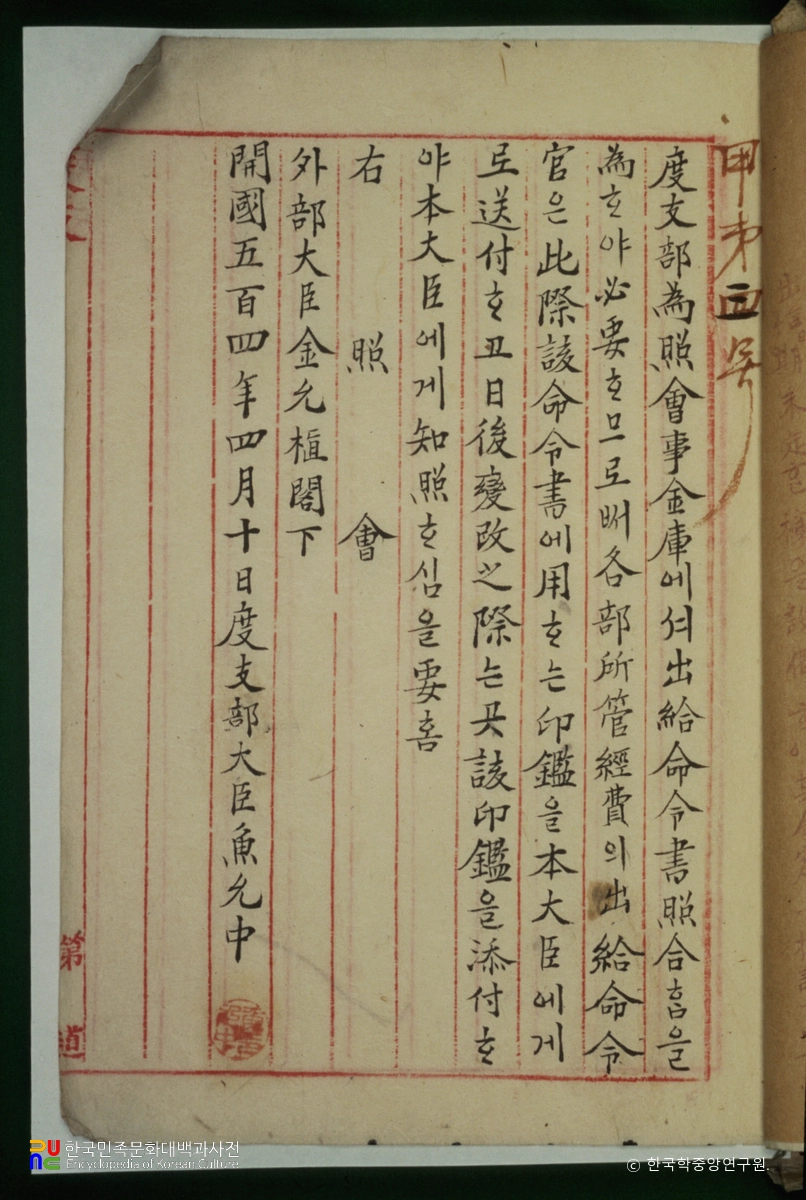 甲第四号
度支部為照會事金庫에셔出給命令書照合홈을
為ᄒᆞ야必要ᄒᆞ므로玆에各部所管經費의出給命令
官은此際該命令書에用ᄒᆞ는印鑑을本大臣에게
로送付ᄒᆞ고日後變改之際는又該印鑑을添付ᄒᆞ
야本大臣에게知照ᄒᆞ심을要홈
右 照 會
外部大臣金允植閣下
開國五百四年四月十日度支部大臣魚允中
第 道
한국민족문화대백과사전
Encyclopedia of Korean Culture
ⓒ 한국학중앙연구원.